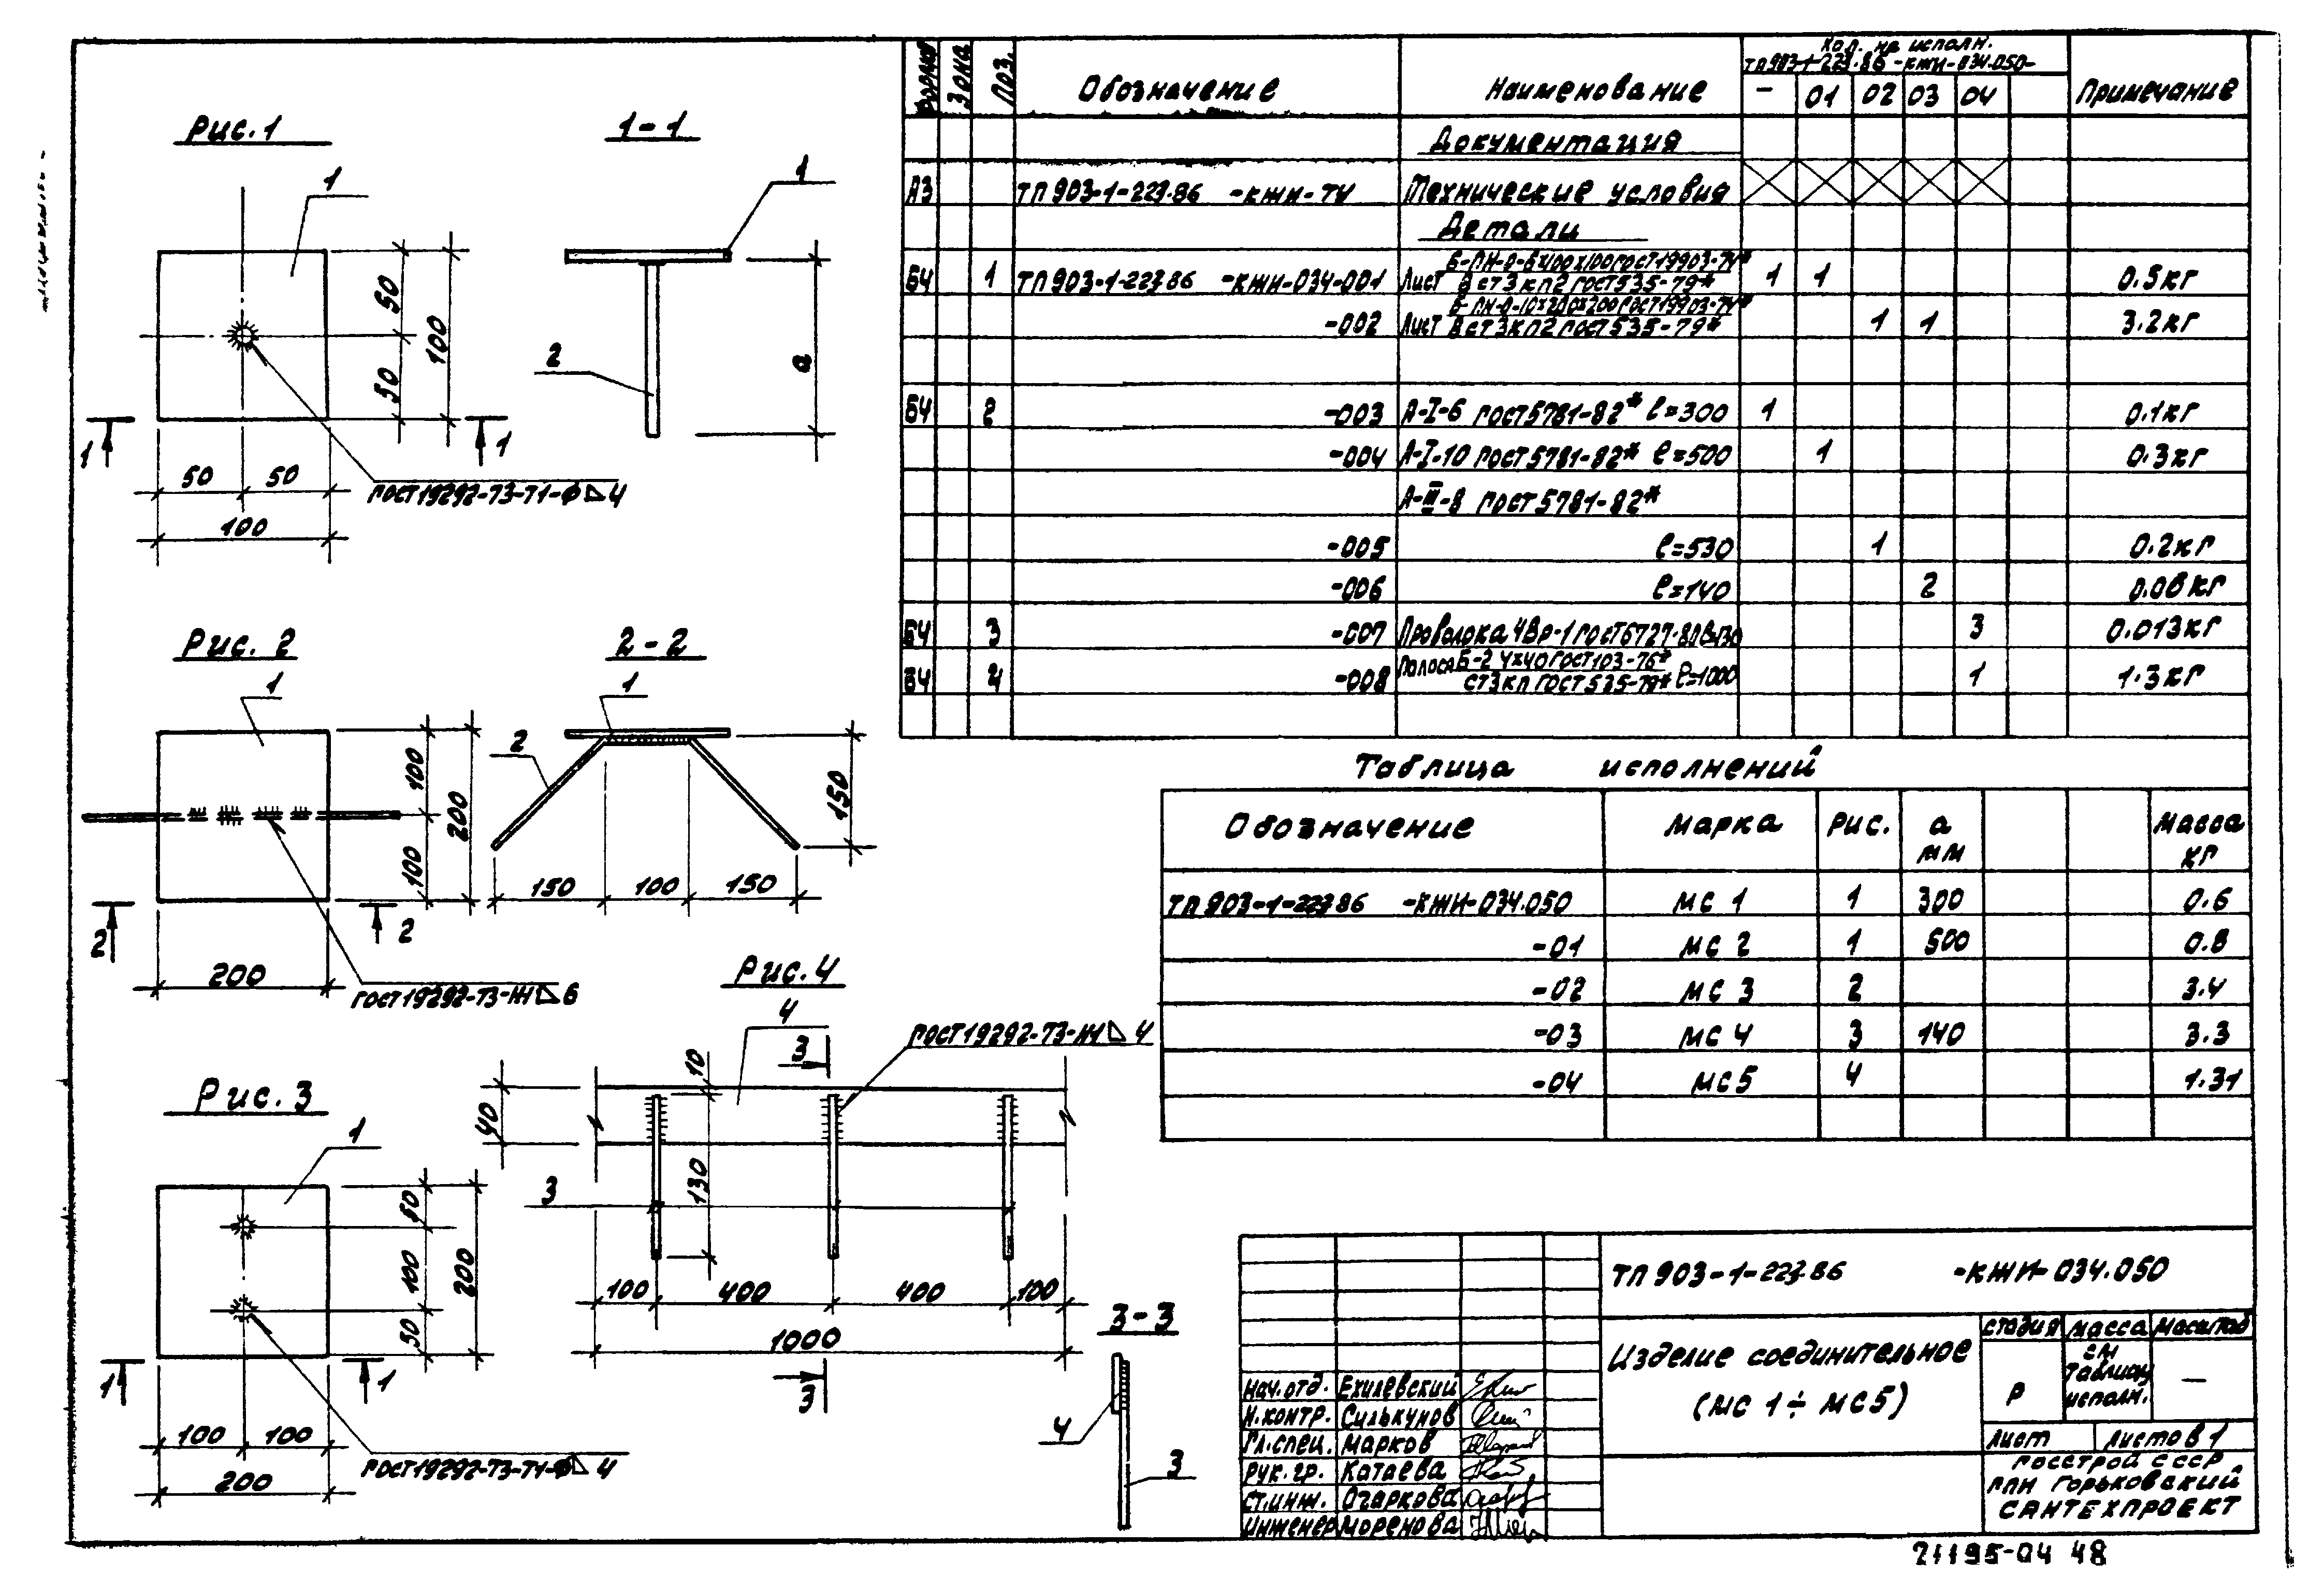 Рис.1
1-1
1
1
2
50
50
100
а
1
1
50
50
100
ГОСТ19292-73-Т1-Ф 4
Рис. 2
2-2
1
1
2
100
100
200
150
150
100
150
2
2
200
ГОСТ19292-73-Н1 6
Рис. 3
1
50
100
50
200
1
1
100
100
200
ГОСТ19292-73-Т1-Ф 4
Рис.4
4
ГОСТ19292-73-Н1 4
3
10
40
130
3
100
400
400
100
1000
3
3-3
4
3
Формат
Зона
Поз.
Обозначение
Наименование
Кол. на исполн.
ТП903-1-223.86 -КЖИ-034.050-
- 01 02 03 04
Примечание
Документация
А3 ТП 903-1-223.86 -КЖИ-ТУ Технические условия
Детали
БЧ 1 ТП 903-1-223.86 -КЖИ-034-001 Лист Б-ПН-О-6х100х100ГОСТ19903-74* 1 1 0.5кг
В ст3кп2 ГОСТ535-79*
-002 Лист Б-ПН-О-10х200х200ГОСТ19903-74* 1 1 3.2кг
В ст3кп2 ГОСТ535-79*
БЧ 2 -003 А-I-6 ГОСТ5781-82* ℓ=300 1 0.1кг
-004 А-I-10 ГОСТ5781-82* ℓ=500 1 0.3кг
А-III-8 ГОСТ5781-82*
-005 ℓ=530 1 0.2кг
-006 ℓ=140 2 0.06кг
БЧ 3 -007 Проволока 4Вр-1 ГОСТ6727-80 ℓ=130 3 0.013кг
БЧ 4 -008 Полоса Б-2 4х40 ГОСТ103-76* ℓ=1000 1 1.3кг
Ст3кп ГОСТ535-79*
Таблица исполнений
Обозначение Марка Рис. а мм Масса кг
ТП 903-1-223.86 -КЖИ-034.050 МС 1 1 300 0.6
-01 МС 2 1 500 0.8
-02 МС 3 2 3.4
-03 МС 4 3 140 3.3
-04 МС5 4 1.31
ТП 903-1-223.86 -КЖИ-034.050
Изделие соединительное
(МС 1÷ МС5)
Стадия Масса Масштаб
Р
см
таблицу
исполн.
-
Лист Листов 1
Госстрой СССР
ППИ Горьковский
Сантехпроект
Нач.отд. Ехилевский
Н.контр. Силькунов
Гл.спец. Марков
Рук.гр. Катаева
Ст.инж. Огаркова
Инженер Моренова
21195-04 48